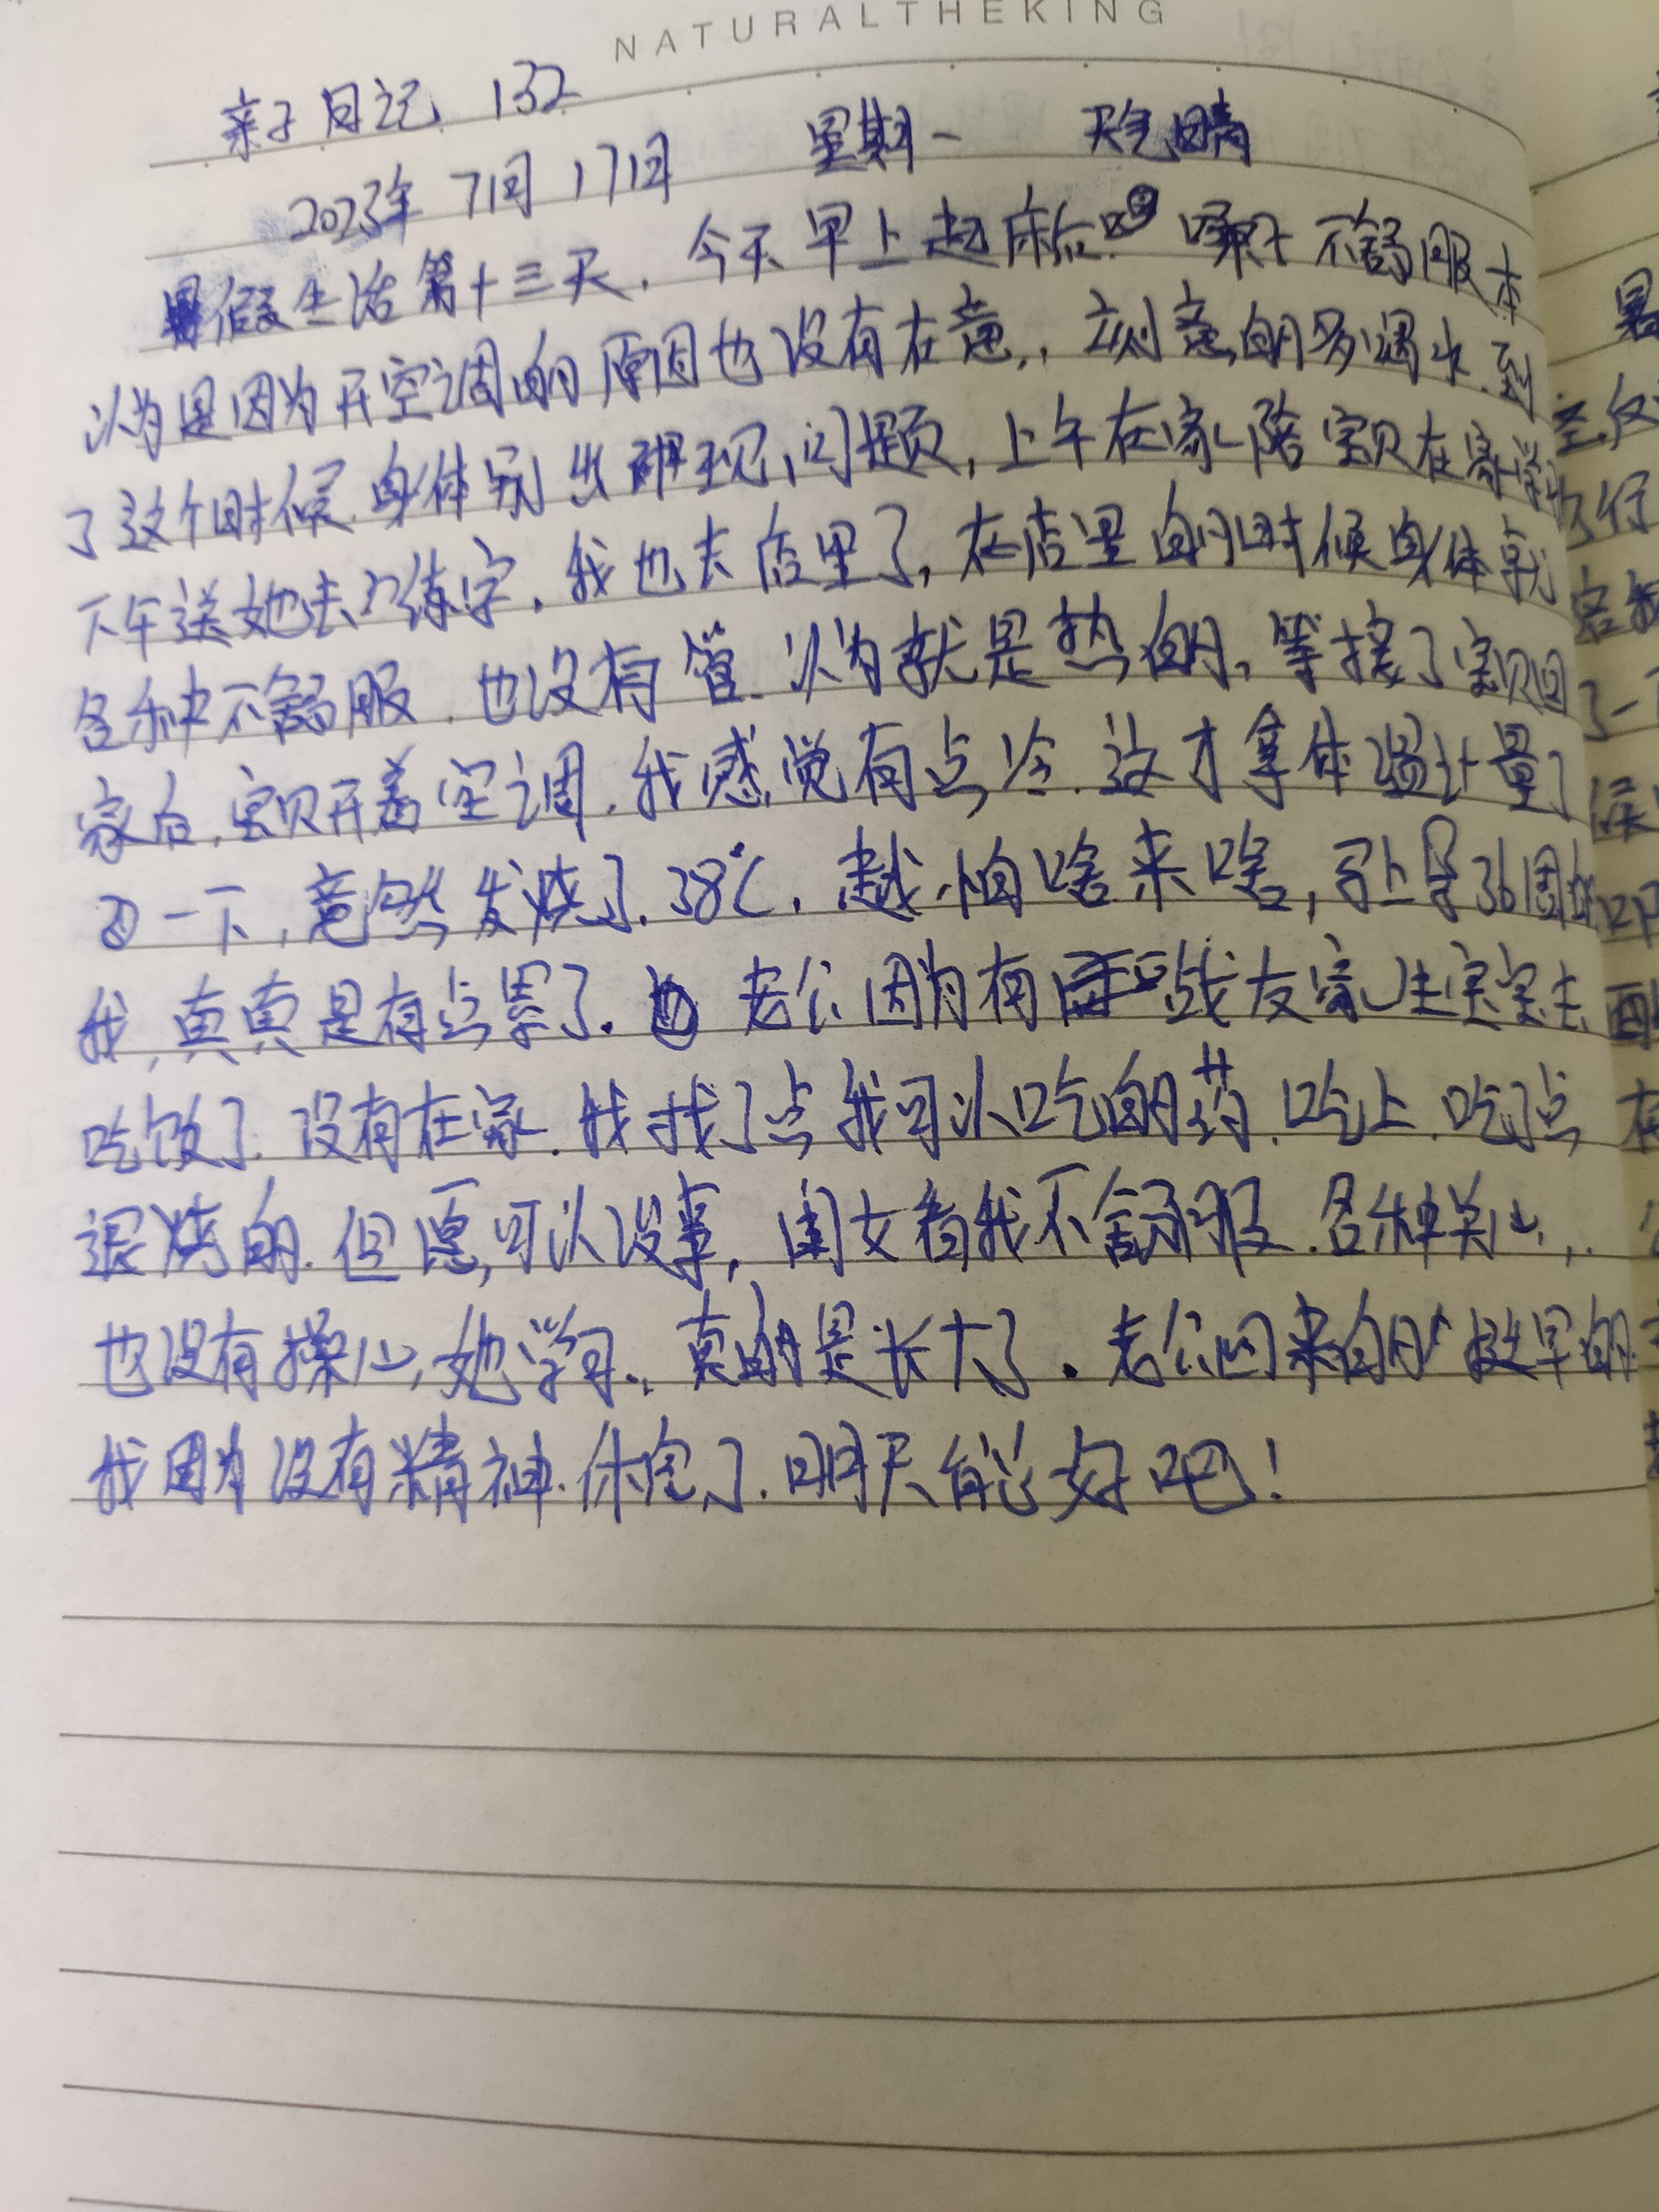 NATURALTHEKING
亲子日记 132
2023年 7月 17日 星期一 天气晴
暑假生活第十三天，今天早上起床后 嗓子不舒服本
以为是因为开空调的原因也没有在意，刻意的多喝水.到
了这个时候.身体别出现问题，上午在家陪宝贝在家学
下午送她去练字.我也去店里了，在店里的时候身体就
各种不舒服.也没有管.以为就是热的，等接了宝贝回
家后，宝贝开着空调.我感觉有点冷.这才拿体温计量了
一下，竟然发烧了.38℃.越怕啥来啥，马上是36周
我，真真是有点累了. 老公因为有战友家生宝宝去
吃饭了.没有在家.我找了点我可以吃的药.吃上.吃了点
退烧的.但愿可以没事，闺女看我不舒服.各种关心，.
也没有操心她学习.，真的是长大了.老公回来的挺早的.
我因为没有精神.休息了.明天能好吧！